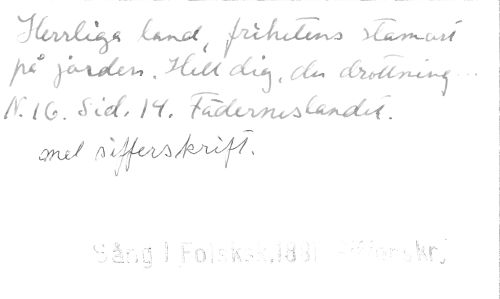 Herrliga land, frihetens stamort
på jorden. Hell dig, du drottning...
N. 16. Sid. 14. Fäderneslandet.
mel sifferskrift.
Sång i Folksk. 183 Sifferskr.